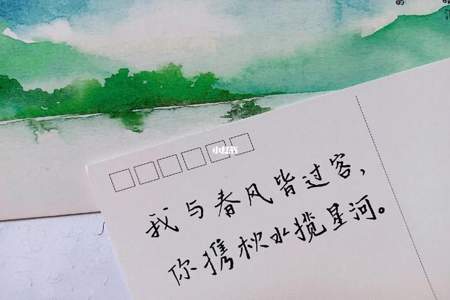 小红书
我与春风皆过客，
你携秋水揽星河。